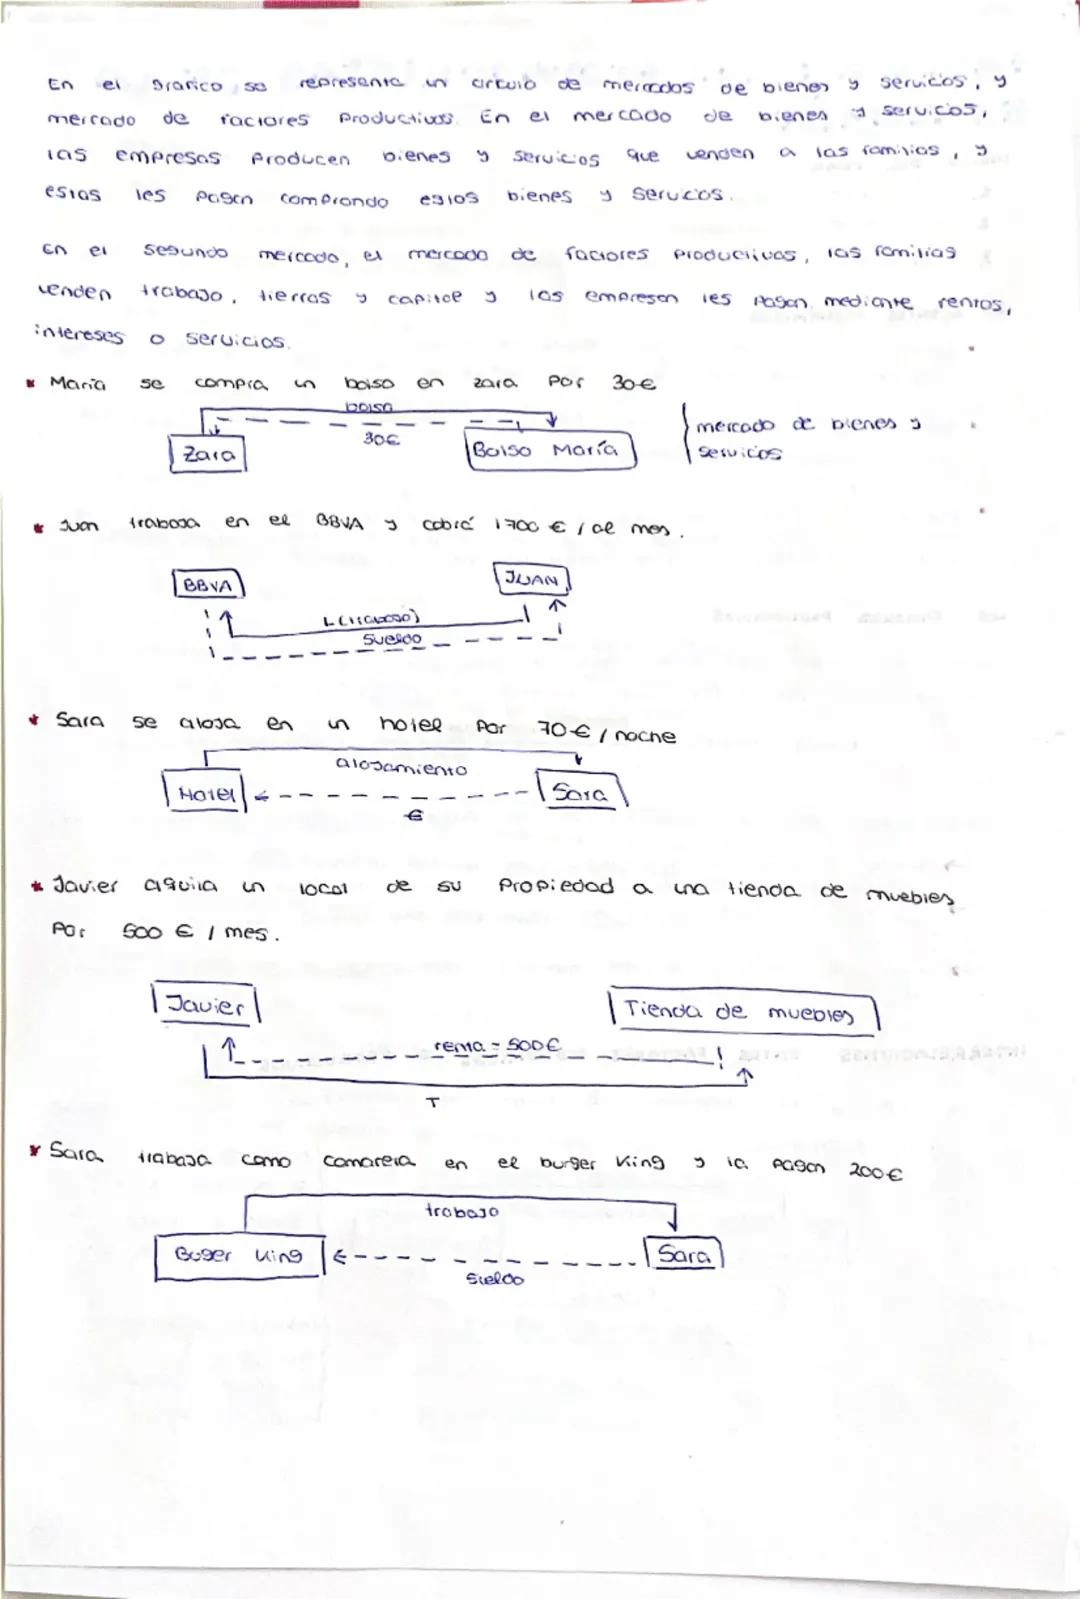 En el grafico se representa un circulo de mercados de bienes y servicos, y
mercado de factores productivos. En el mercado de bienes y servicos,
las empresas producen bienes y servicios que venden a las familias, y
estas les pagan comprando estos bienes y servicos.
En el segundo mercado, el mercado de factores productivos, las familias
venden trabajo, tierras y capital y las empresan les pagan mediante rentas,
intereses o servicios.
* Maria se compra un bolso en zara por 30€
bolso
30€
Zara
Bolso María
mercado de bienes y
servicos
* Juan trabaja en el BBVA y cobra 1700 € / al mes.
BBVA
JUAN
L (trabajo)
Sueldo
* Sara se aloja en un hotel por 70€ / noche
alojamiento
Hotel
Sara
€
* Javier alquila un local de su propiedad a una tienda de muebles
por 500 € / mes.
Javier
Tienda de muebles
renta = 500€
T
* Sara trabaja como camarera en el burger King y la pagan 200€
trabajo
Buger King
Sara
Sueldo